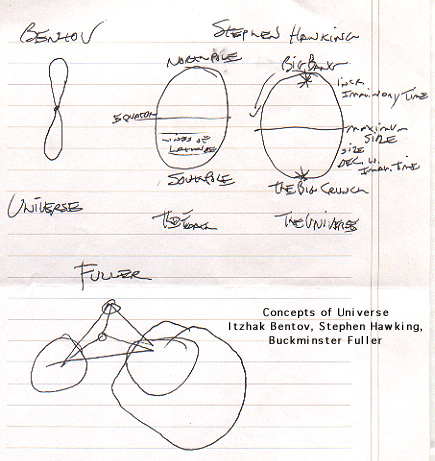 BENTOV
STEPHEN HAWKING
NORTH POLE
BIG BANG
INCR.
IMAGINARY TIME
EQUATOR
LINES OF
LATITUDE
MAXIMUM
SIZE
SIZE
DEC. W.
IMAG. TIME
SOUTH POLE
THE BIG CRUNCH
UNIVERSE
THE UNIVERSE
FULLER
Concepts of Universe
Itzhak Bentov, Stephen Hawking,
Buckminster Fuller